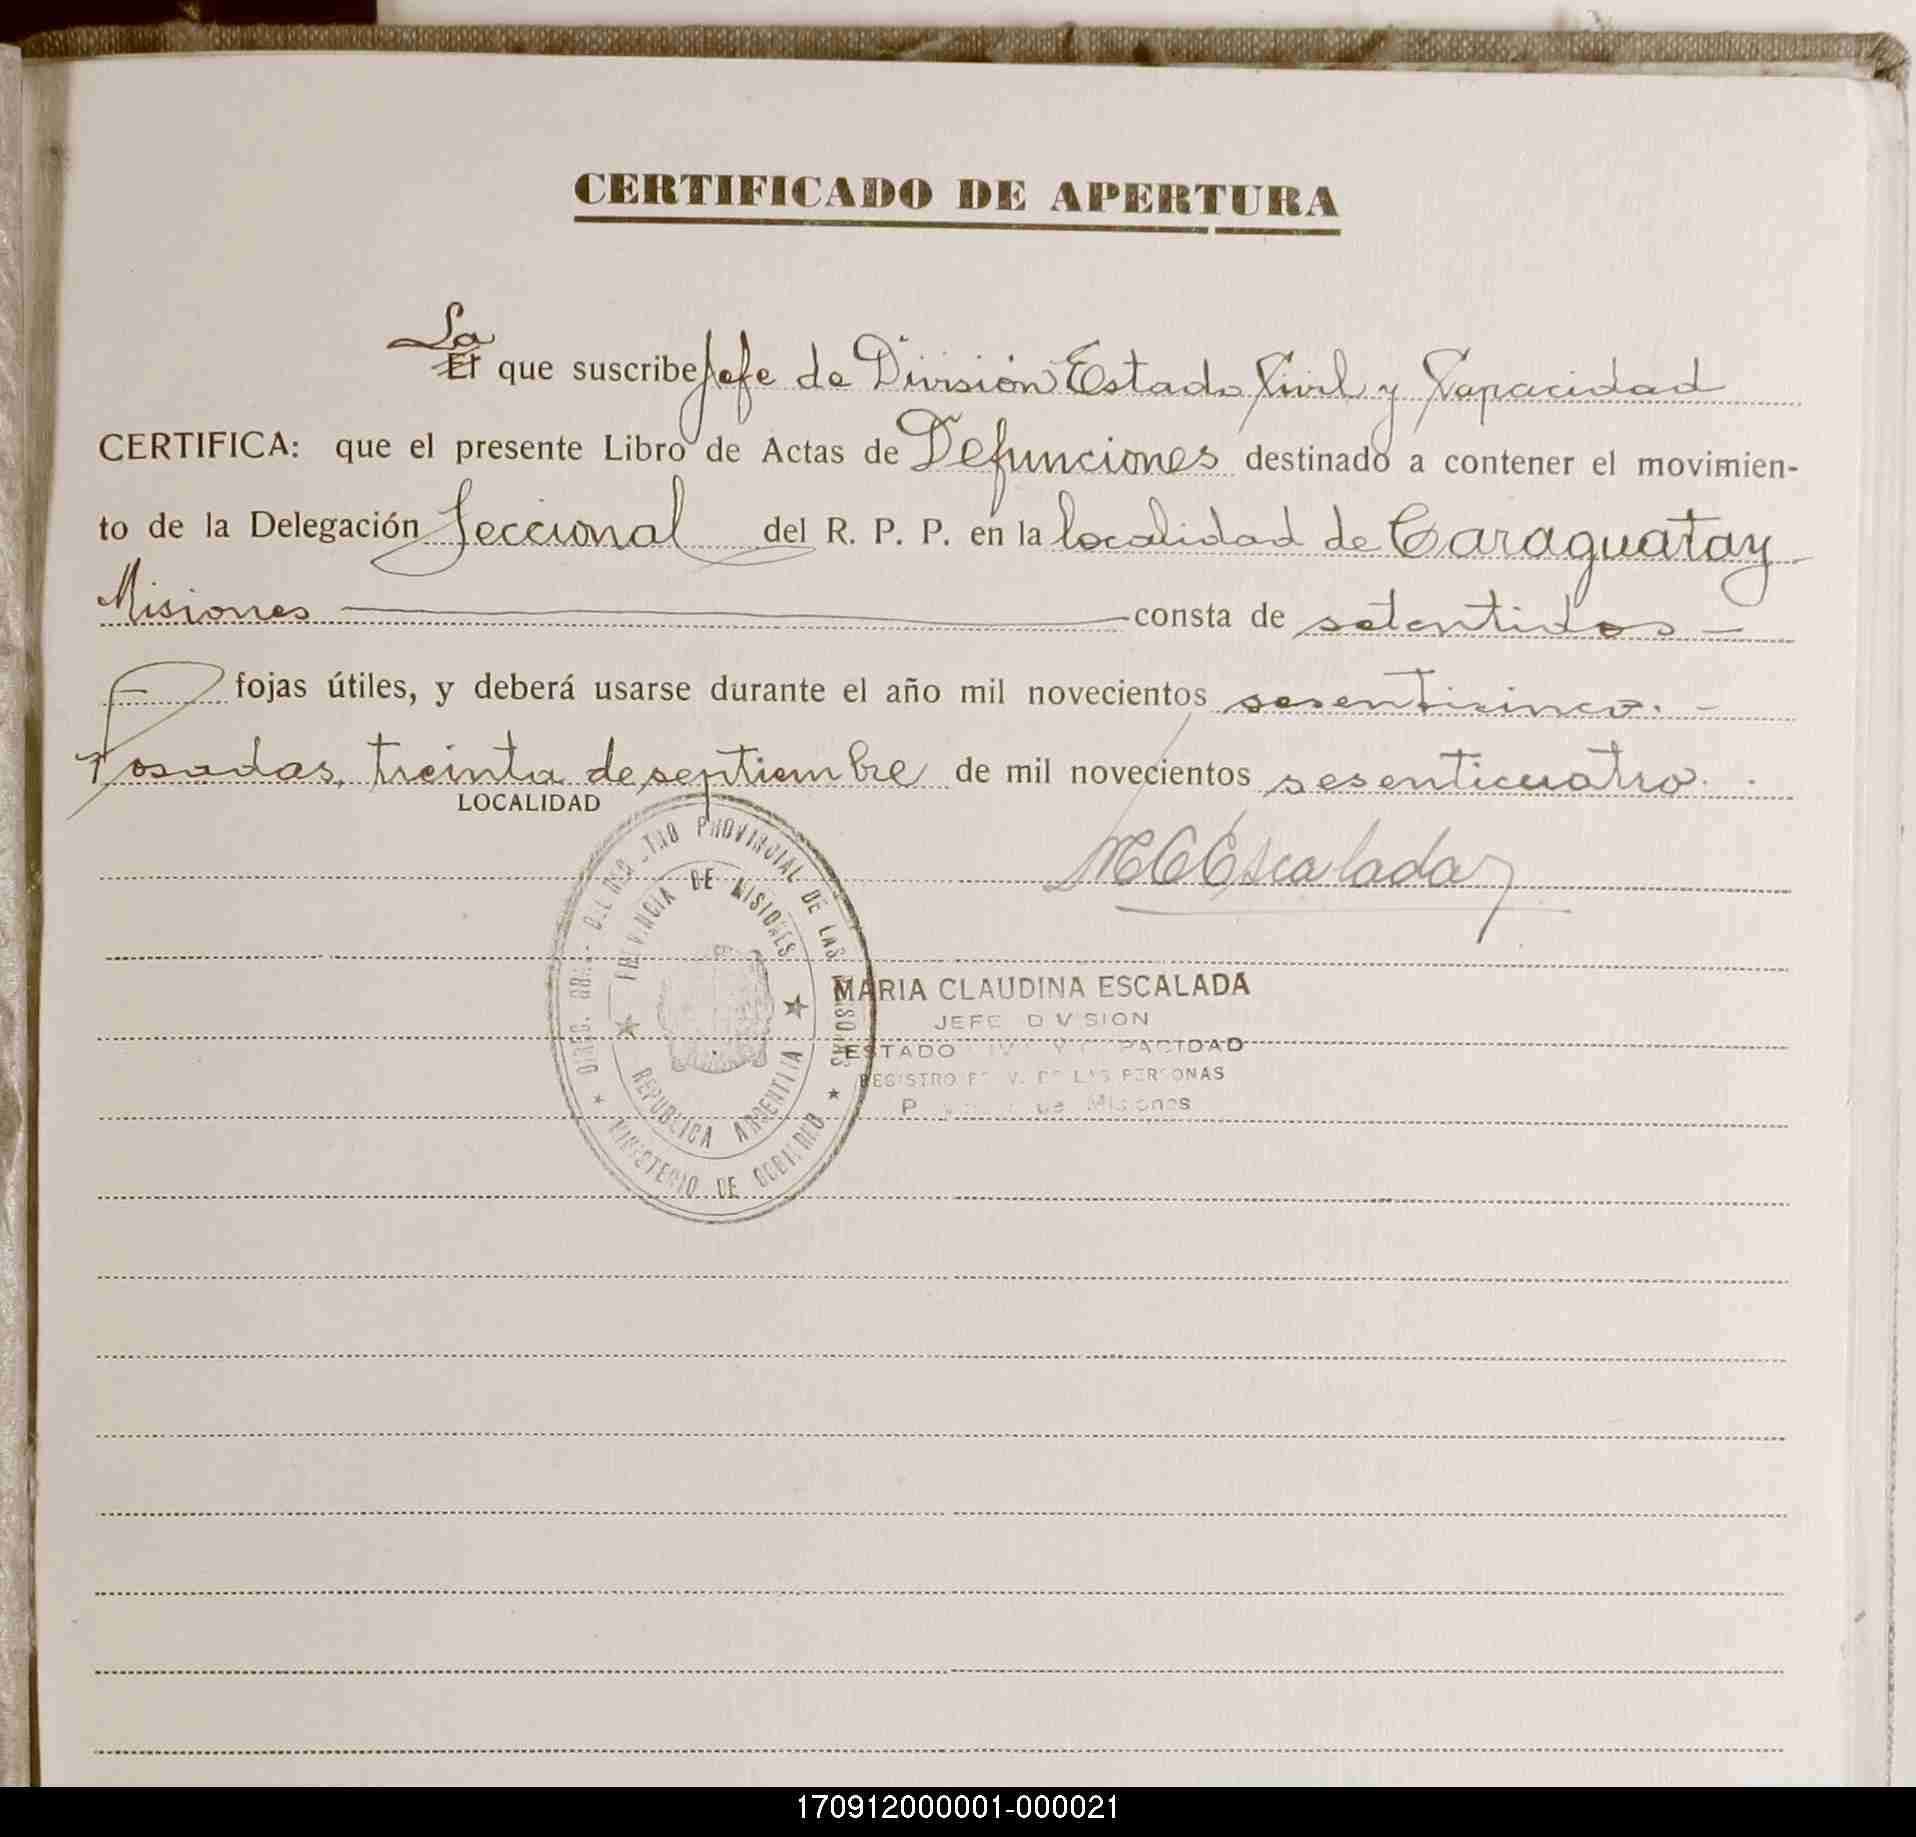 CERTIFICADO DE APERTURA
La
El que suscribe Jefe de División Estado Civil y Capacidad
CERTIFICA: que el presente Libro de Actas de Defunciones destinado a contener el movimien-
to de la Delegación Seccional del R. P. P. en la localidad de Caraguatay
Misiones consta de setentidos
fojas útiles, y deberá usarse durante el año mil novecientos sesenticinco.
Posadas, treinta de septiembre de mil novecientos sesenticuatro.
LOCALIDAD
M C Escalada
PROVINCIAL DE LAS PERSONAS
PROVINCIA DE MISIONES
REPUBLICA ARGENTINA
MINISTERIO DE GOBIERNO
MARIA CLAUDINA ESCALADA
JEFE DIVISION
ESTADO CIVIL Y CAPACIDAD
REGISTRO P V. DE LAS PERSONAS
de Misiones
170912000001-000021